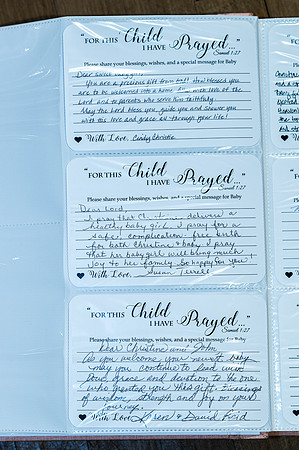 "FOR THIS Child
I HAVE Prayed..."
Samuel 1:27
Please share your blessings, wishes, and a special message for Baby
Dear Sweet baby girl,
You are a precious gift from God! How blessed you
are to be welcomed into a home with love of the
Lord and to parents who serve Him faithfully.
May the Lord bless you, guide you and shower you
with His love and grace all through your life!
With Love, Cindy Christie
"FOR THIS Child
I HAVE Prayed..."
Samuel 1:27
Please share your blessings, wishes, and a special message for Baby
Dear Lord,
I pray that delivers a
healthy baby girl. I pray for a
safe, complication-free birth
for both Christine & baby. I pray
that her baby girl will bring much
joy to her family. So happy for you!
With Love, Susan Terrell
"FOR THIS Child
I HAVE Prayed..."
Samuel 1:27
Please share your blessings, wishes, and a special message for Baby
Dear Christine and John,
As you welcome your newest baby
may you continue to lead with
love, grace and devotion to the one
who granted you this gift. Blessings
of wisdom, strength and joy on your
journey.
With Love, & David Reid